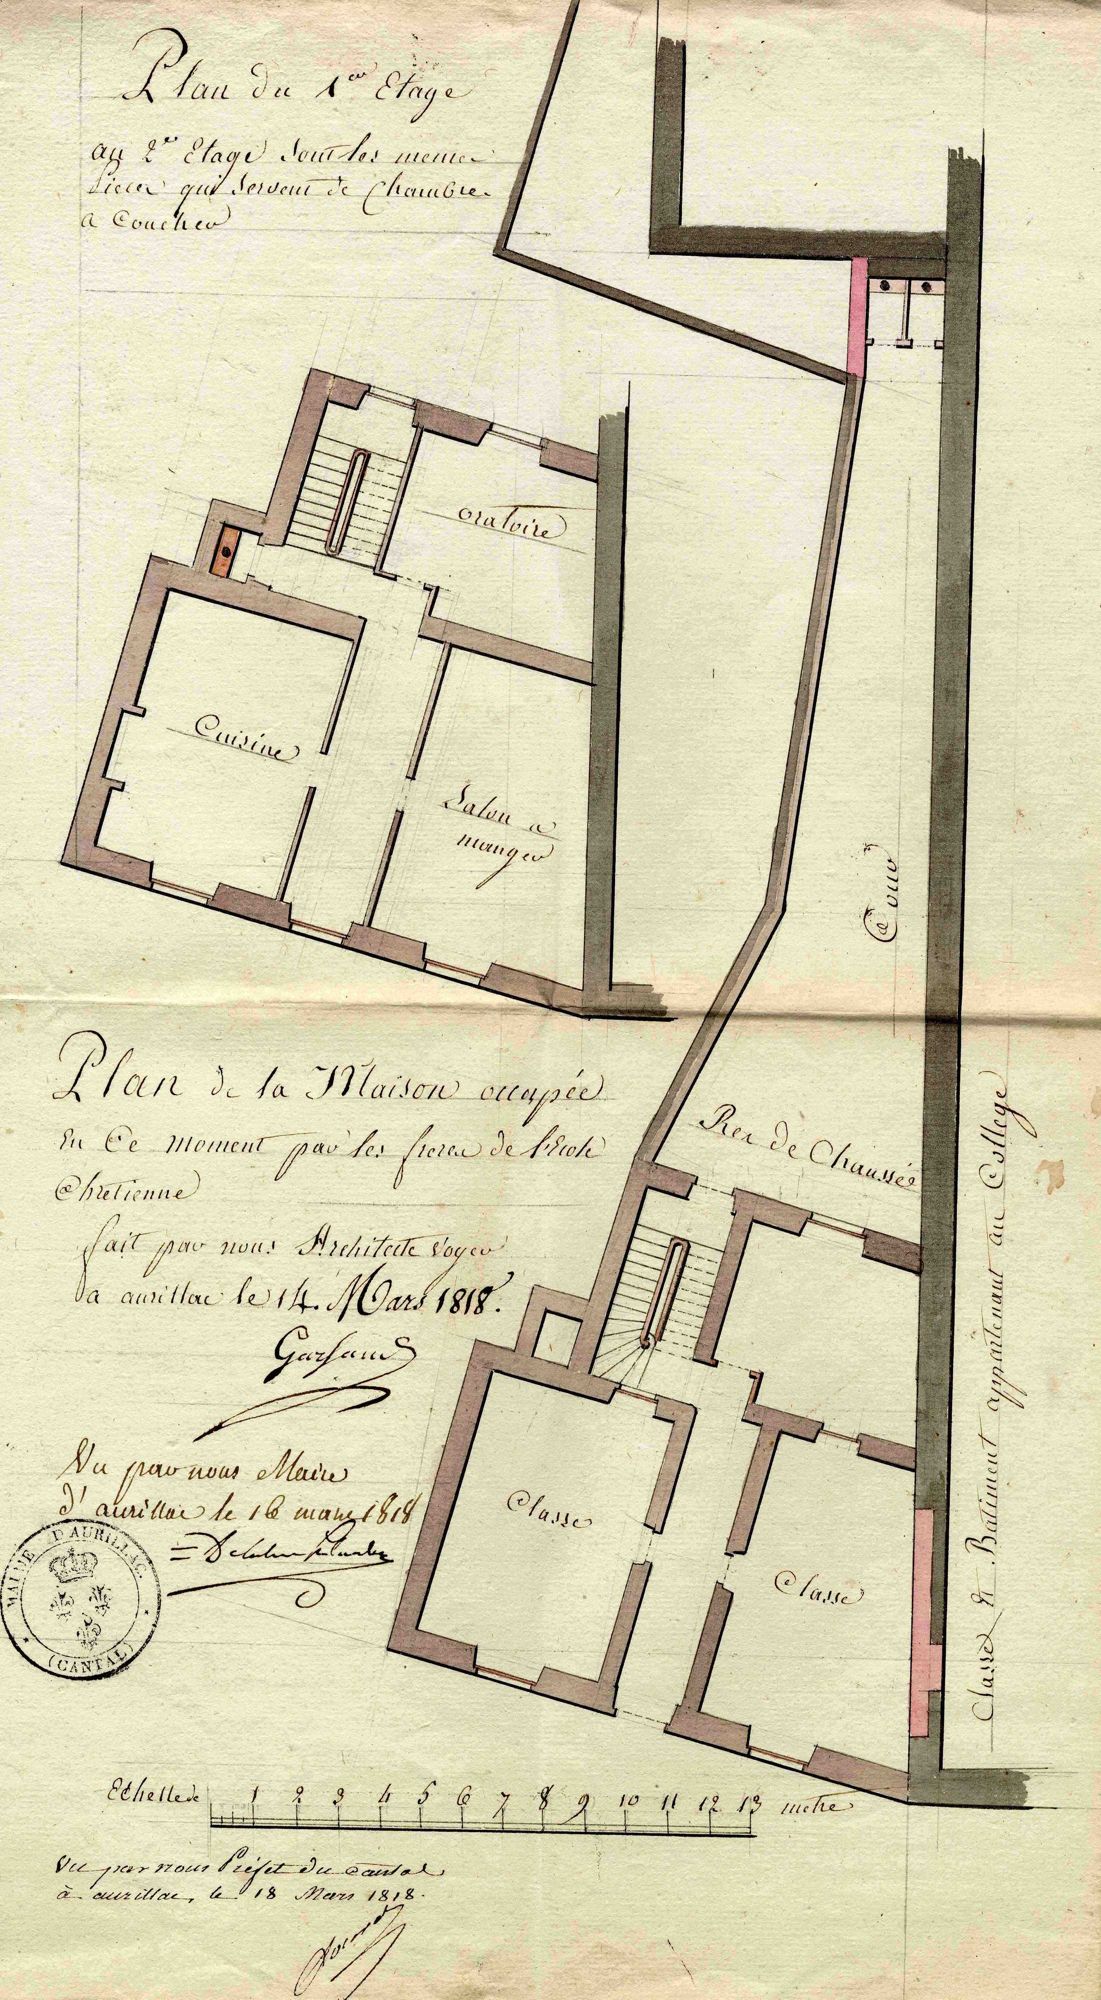 Plan du 1er Etage
au 2e Etage sont les meme
Pieces qui servent de Chambre
a Coucher
oratoire
Cuisine
Salon a
manger
Cour
Plan de la Maison occupée
En Ce moment par les freres de l'Ecole
Chretienne
fait par nous Architecte voyer
a aurillac le 14. Mars 1818.
Rez de Chaussée
Vu par nous Maire
d'aurillac le 16 mars 1818
MAIRIE D'AURILLAC.
(CANTAL)
Classe
Classe
Classe et Batiment appartenant au College
Echelle de 1 2 3 4 5 6 7 8 9 10 11 12 13 metre
Vu par nous Préfet du Cantal
à aurillac, le 18 Mars 1818.